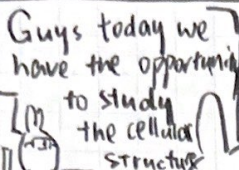 Guys today we
have the opportunity
to study
the cellular
structure